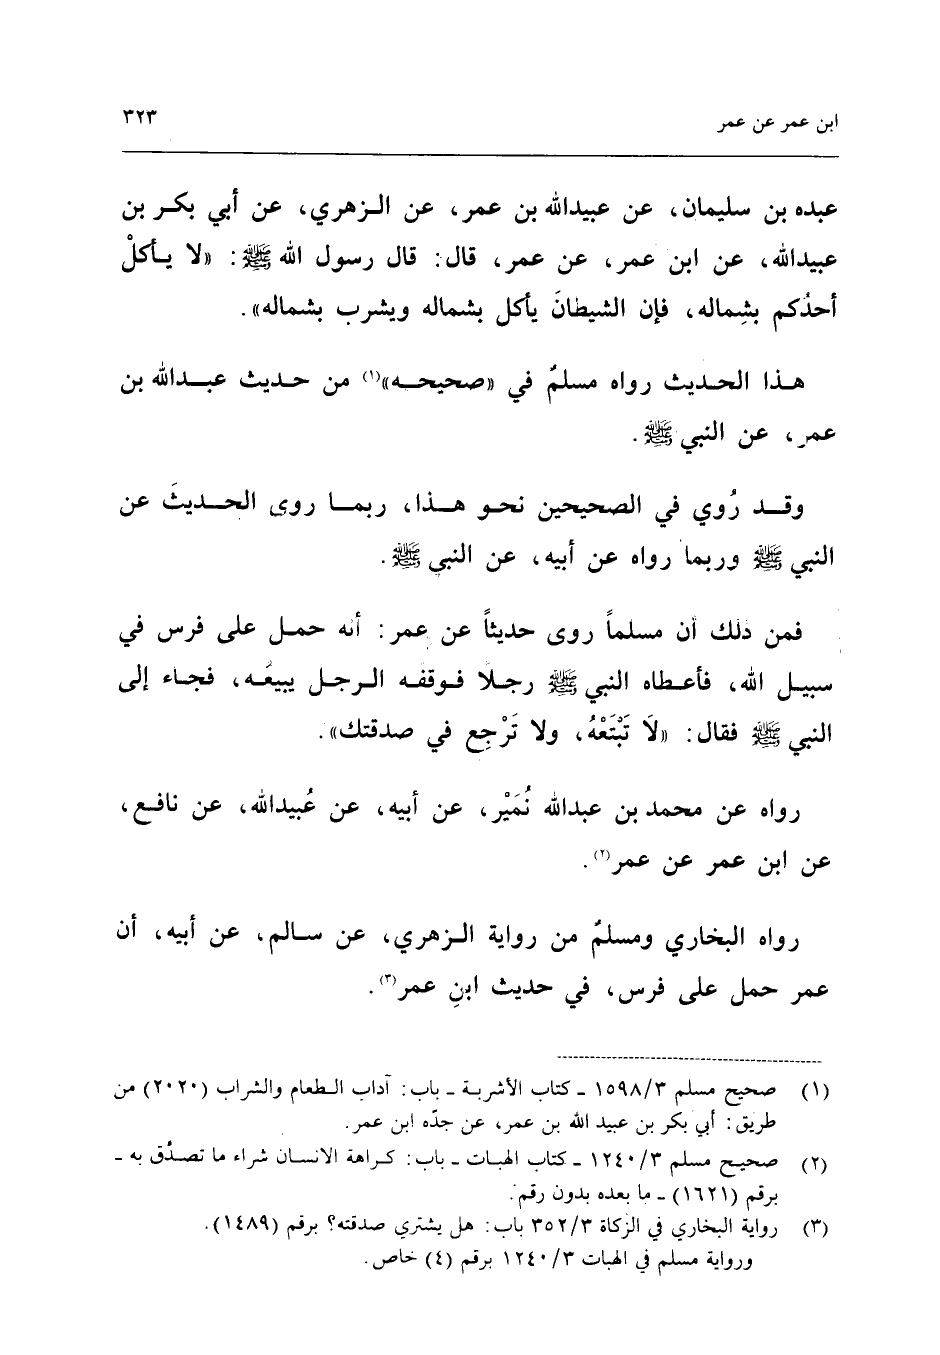 ابن عمر عن عمر ٣٢٣
عبده بن سليمان، عن عبيدالله بن عمر، عن الـزهري، عن أبي بكـر بن
عبيدالله، عن ابن عمر، عن عمر، قال: قال رسول الله ﷺ: «لا يـأكلْ
أحدُكم بشِماله، فإن الشيطانَ يأكل بشماله ويشرب بشماله».
هـذا الحـديث رواه مسلمٌ في «صحيحـه»(١) من حـديث عبـدالله بن
عمر، عن النبي ﷺ.
وقـد رُوي في الصحيحين نحـو هـذا، ربمـا روى الحـديثَ عن
النبي ﷺ وربما رواه عن أبيه، عن النبي ﷺ.
فمن ذلك أن مسلماً روى حديثاً عن عمر: أنه حمـل على فرس في
سبيـل الله، فأعـطاه النبي ﷺ رجـلًا فـوقفـه الـرجـل يبيعُـه، فجـاء إلى
النبي ﷺ فقال: «لاَ تَبْتَعْهُ، ولا تَرْجِع في صدقتك».
رواه عن محمد بن عبدالله نُمَيْر، عن أبيه، عن عُبيدالله، عن نافـع،
عن ابن عمر عن عمر(٢).
رواه البخاري ومسلمٌ من رواية الـزهري، عن سـالم، عن أبيه، أن
عمر حمل على فرس، في حديث ابنِ عمر(٣).
(١) صحيح مسلم ١٥٩٨/٣ ـ كتاب الأشربـة ـ باب: آداب الـطعام والشراب (٢٠٢٠) من
طريق: أبي بكر بن عبيد الله بن عمر، عن جدّه ابن عمر.
(٢) صحيـح مسلم ١٢٤٠/٣ ـ كتاب الهبات ـ باب: كـراهة الانسـان شراء ما تصـدُق به ـ
برقم (١٦٢١) ـ ما بعده بدون رقم.
(٣) رواية البخاري في الزكاة ٣٥٢/٣ باب: هل يشتري صدقته؟ برقم (١٤٨٩).
ورواية مسلم في الهبات ١٢٤٠/٣ برقم (٤) خاص.